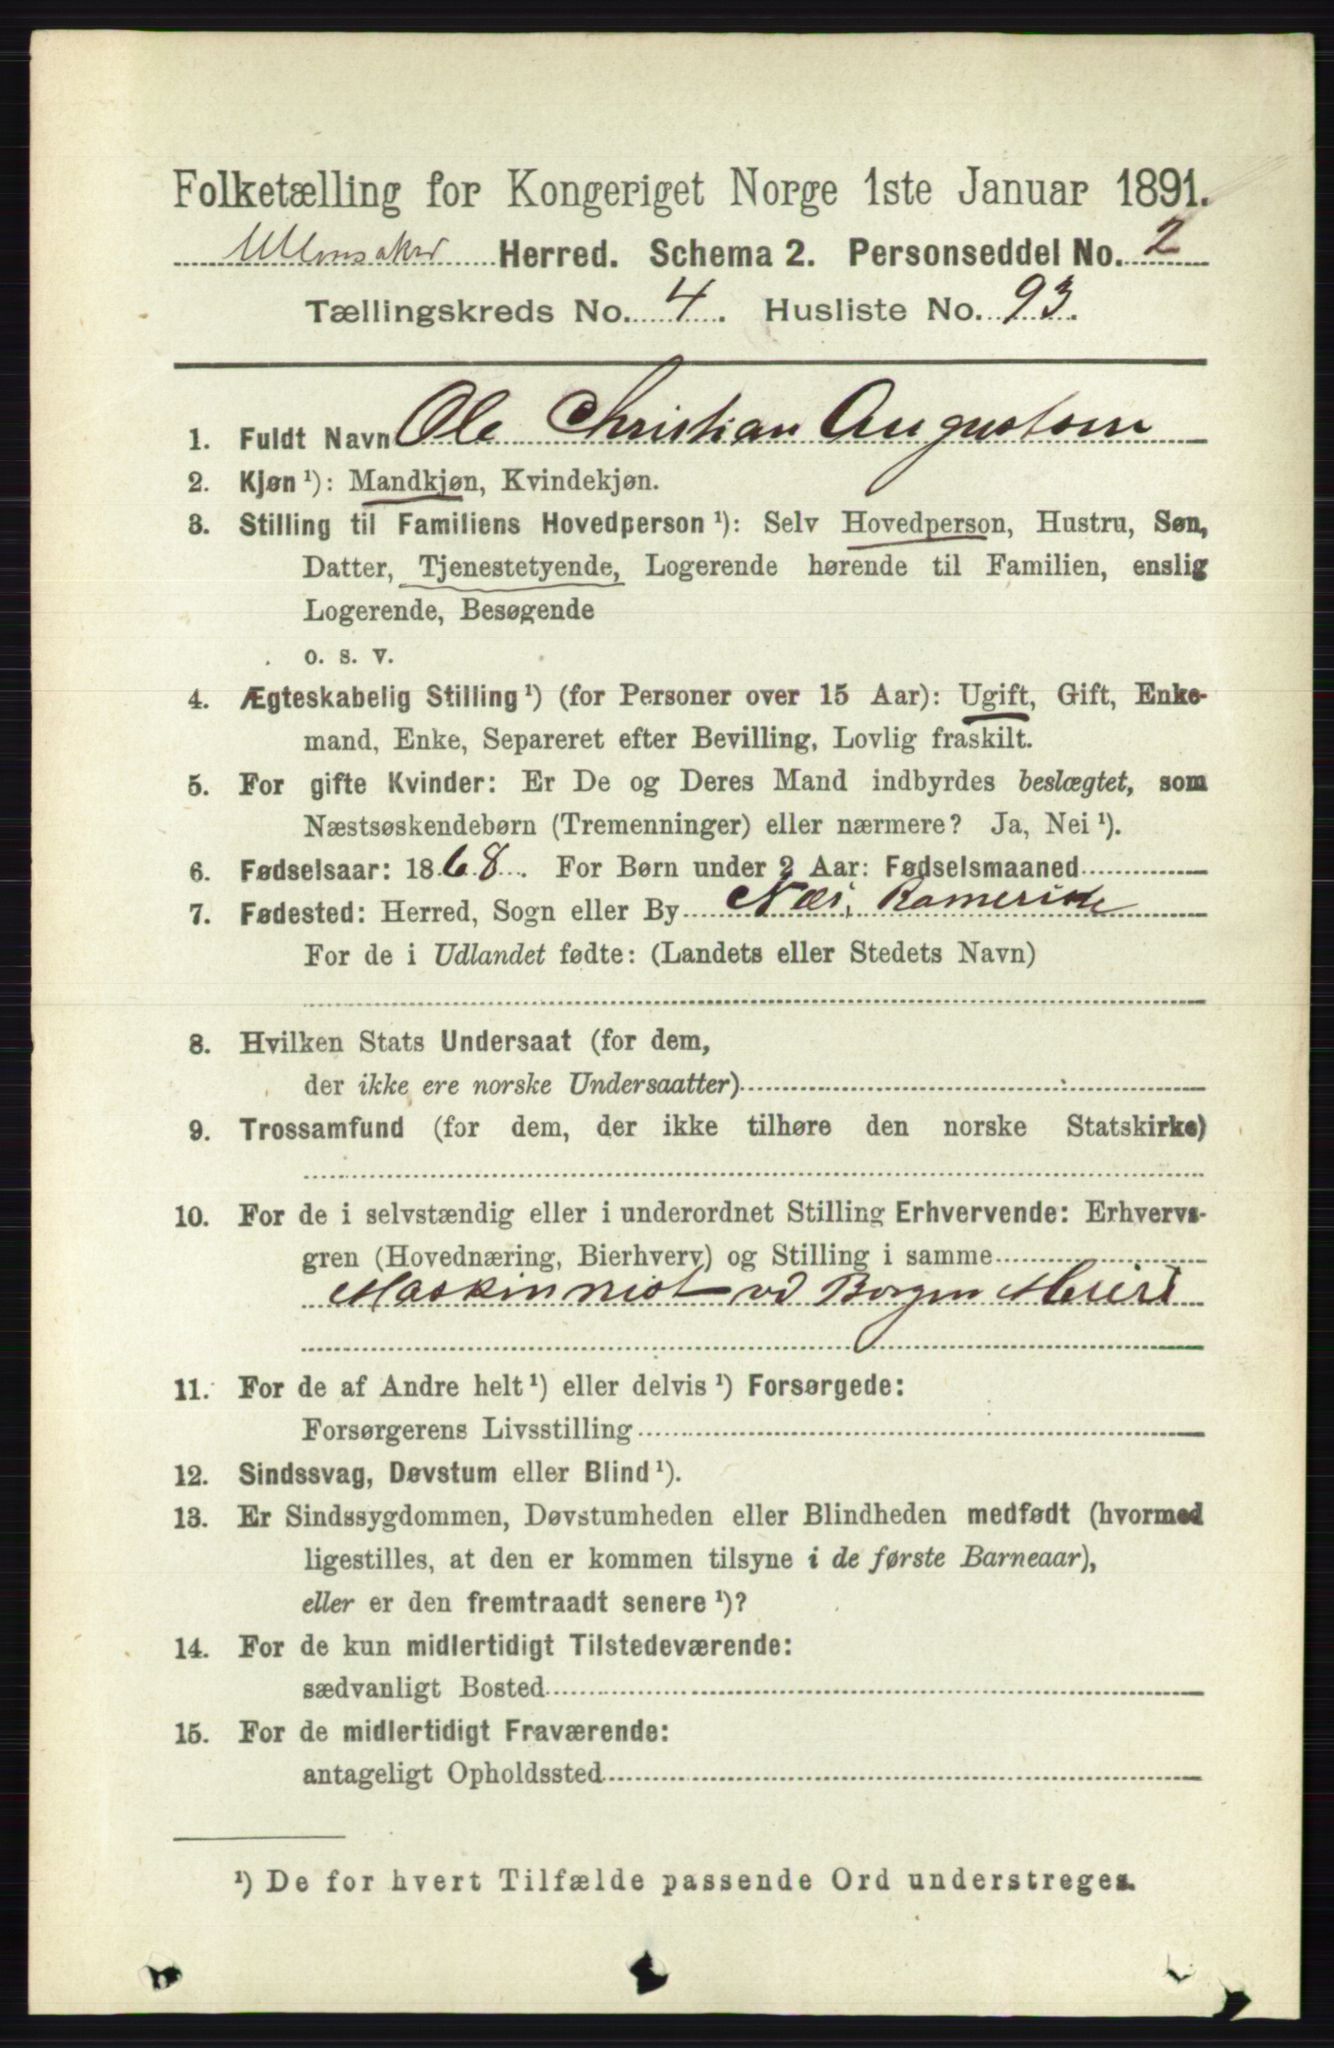 Folketælling for Kongeriget Norge 1ste Januar 1891.
Ullensaker Herred. Schema 2. Personseddel No. 2
Tællingskreds No. 4. Husliste No. 93.
1. Fuldt Navn Ole Christian Augustson
2. Kjøn ¹): Mandkjøn, Kvindekjøn.
3. Stilling til Familiens Hovedperson ¹): Selv Hovedperson, Hustru, Søn,
Datter, Tjenestetyende, Logerende hørende til Familien, enslig
Logerende, Besøgende
o. s. v.
4. Ægteskabelig Stilling ¹) (for Personer over 15 Aar): Ugift, Gift, Enke-
mand, Enke, Separeret efter Bevilling, Lovlig fraskilt.
5. For gifte Kvinder: Er De og Deres Mand indbyrdes beslægtet, som
Næstsøskendebørn (Tremenninger) eller nærmere? Ja, Nei ¹).
6. Fødselsaar: 1868. For Børn under 2 Aar: Fødselsmaaned
7. Fødested: Herred, Sogn eller By Næs, Romerike
For de i Udlandet fødte: (Landets eller Stedets Navn)
8. Hvilken Stats Undersaat (for dem,
der ikke ere norske Undersaatter)
9. Trossamfund (for dem, der ikke tilhøre den norske Statskirke)
10. For de i selvstændig eller i underordnet Stilling Erhvervende: Erhvervs-
gren (Hovednæring, Bierhverv) og Stilling i samme
Maskinnist vd Borgen Meieri
11. For de af Andre helt ¹) eller delvis ¹) Forsørgede:
Forsørgerens Livsstilling
12. Sindssvag, Døvstum eller Blind ¹).
13. Er Sindssygdommen, Døvstumheden eller Blindheden medfødt (hvormed
ligestilles, at den er kommen tilsyne i de første Barneaar),
eller er den fremtraadt senere ¹)?
14. For de kun midlertidigt Tilstedeværende:
sædvanligt Bosted
15. For de midlertidigt Fraværende:
antageligt Opholdssted
¹) De for hvert Tilfælde passende Ord understreges.